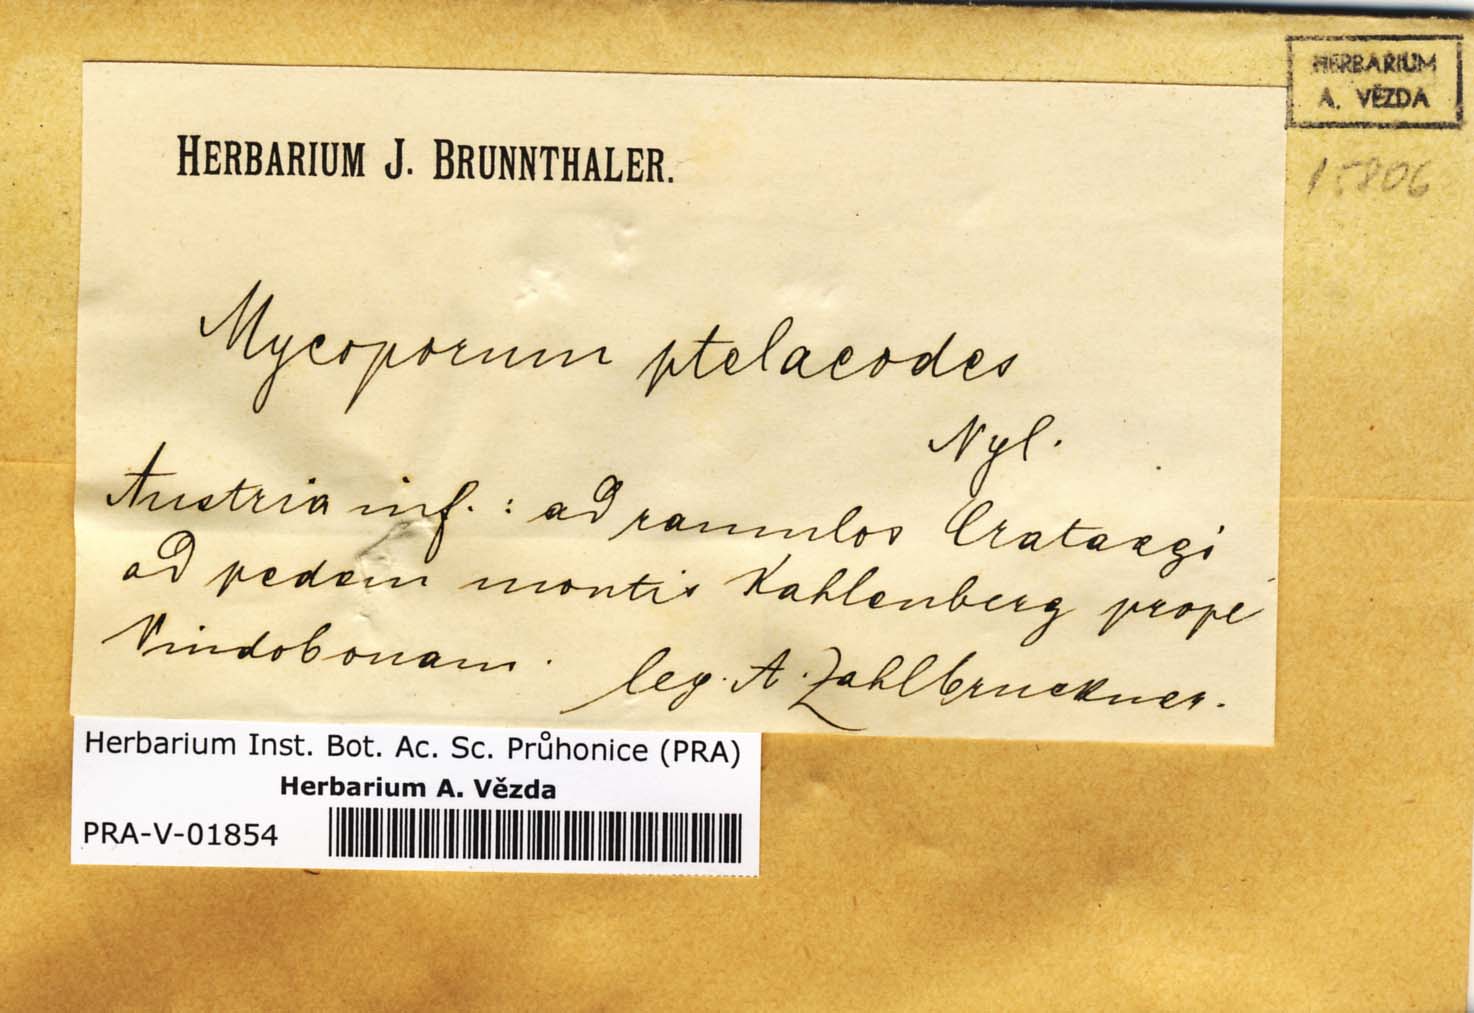 HERBARIUM
A. VĚZDA
15806
HERBARIUM J. BRUNNTHALER.
Mycoporum ptelaeodes
Nyl.
Austria inf. : ad ramulos Crataegi
ad pedem montis Kahlenberg prope
Vindobonam. leg. A. Zahlbruckner.
Herbarium Inst. Bot. Ac. Sc. Průhonice (PRA)
Herbarium A. Vězda
PRA-V-01854